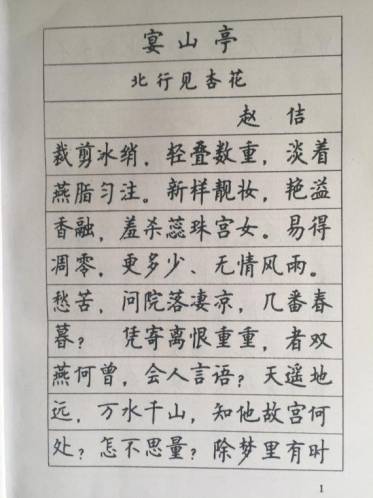 宴山亭
北行见杏花
赵佶
裁剪冰绡，轻叠数重，淡着
燕脂匀注。新样靓妆，艳溢
香融，羞杀蕊珠宫女。易得
凋零，更多少、无情风雨。
愁苦，问院落凄凉，几番春
暮？ 凭寄离恨重重，者双
燕何曾，会人言语？天遥地
远，万水千山，知他故宫何
处？怎不思量？除梦里有时
1